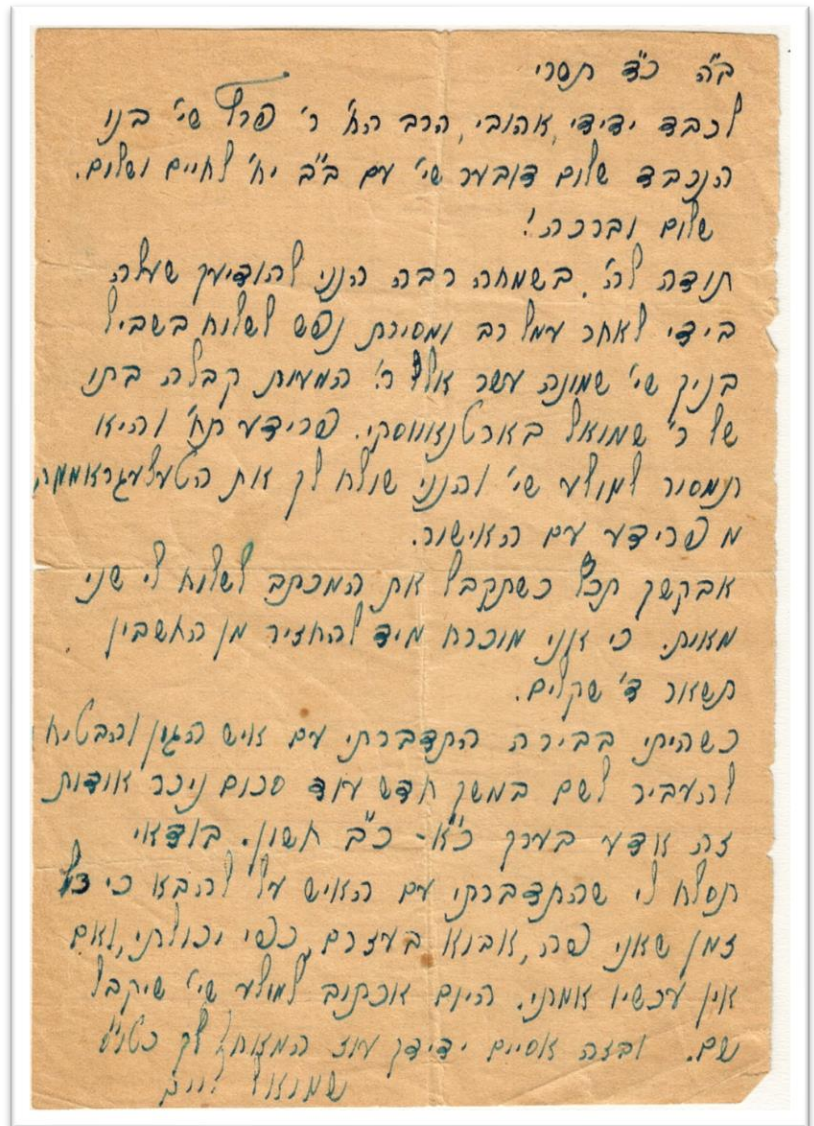 ב"ה כ"ד תשרי
לכבד ידידי, אהובי, הרב הח' ר' פרץ שי' בנו
הנכבד שלום דובער שי' עם ב"ב יח' לחיים ושלום.
שלום וברכה!
תודה לה', בשמחה רבה הנני להודיעך שעלה
בידי לאחר עמל רב ומסירת נפש לשלוח בשביל
בניך שי' שמונה עשר אלף ר' המעות קבלה בתו
של ר' שמואל בארטנאווסקי. פרידע תח' והיא
תמסור למולע שי' והנני שולח לך את הטעלעגראממה
מפרידע עם האישור.
אבקשך תכף כשתקבל את המכתב לשלוח לי שני
מאות. כי אנני מוכרח מיד להחזיר מן החשבון
תשאר ד' שקלים.
כשהייתי בבירה התדברתי עם איש הגון והבטיח
להעביר לשם במשך חדש עוד סכום ניכר אודות
זה אדע בערך כ"א - כ"ב חשון. בודאי
תסלח לי שהתדברתי עם האיש על להבא כי כל
זמן שאני פה, אבוא בעזרם, כפי יכולתי, ואם
אין עכשיו אמתי. היום אכתוב למולע שי' שיקבל
שם. ובזה אסיים ידידך המאחל לך כטו"ס
שמואל